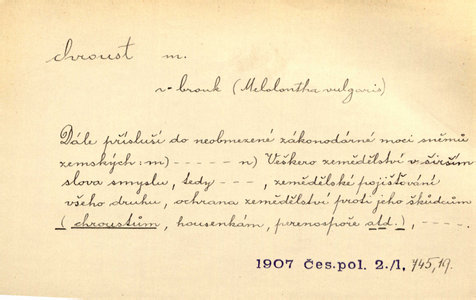 chroust m.
v- brouk (Melolontha vulgaris)
Dále přísluší do neobmezené zákonodárné moci sněmů
zemských: m) - - - - - n) Veškero zemědělství v širším
slova smyslu, tedy - - - , zemědělské pojišťování
všeho druhu, ochrana zemědělství proti jeho škůdcům
(chroustům, housenkám, perenospoře atd.), - - - -.
1907 Čes. pol. 2./I, 745, 19.